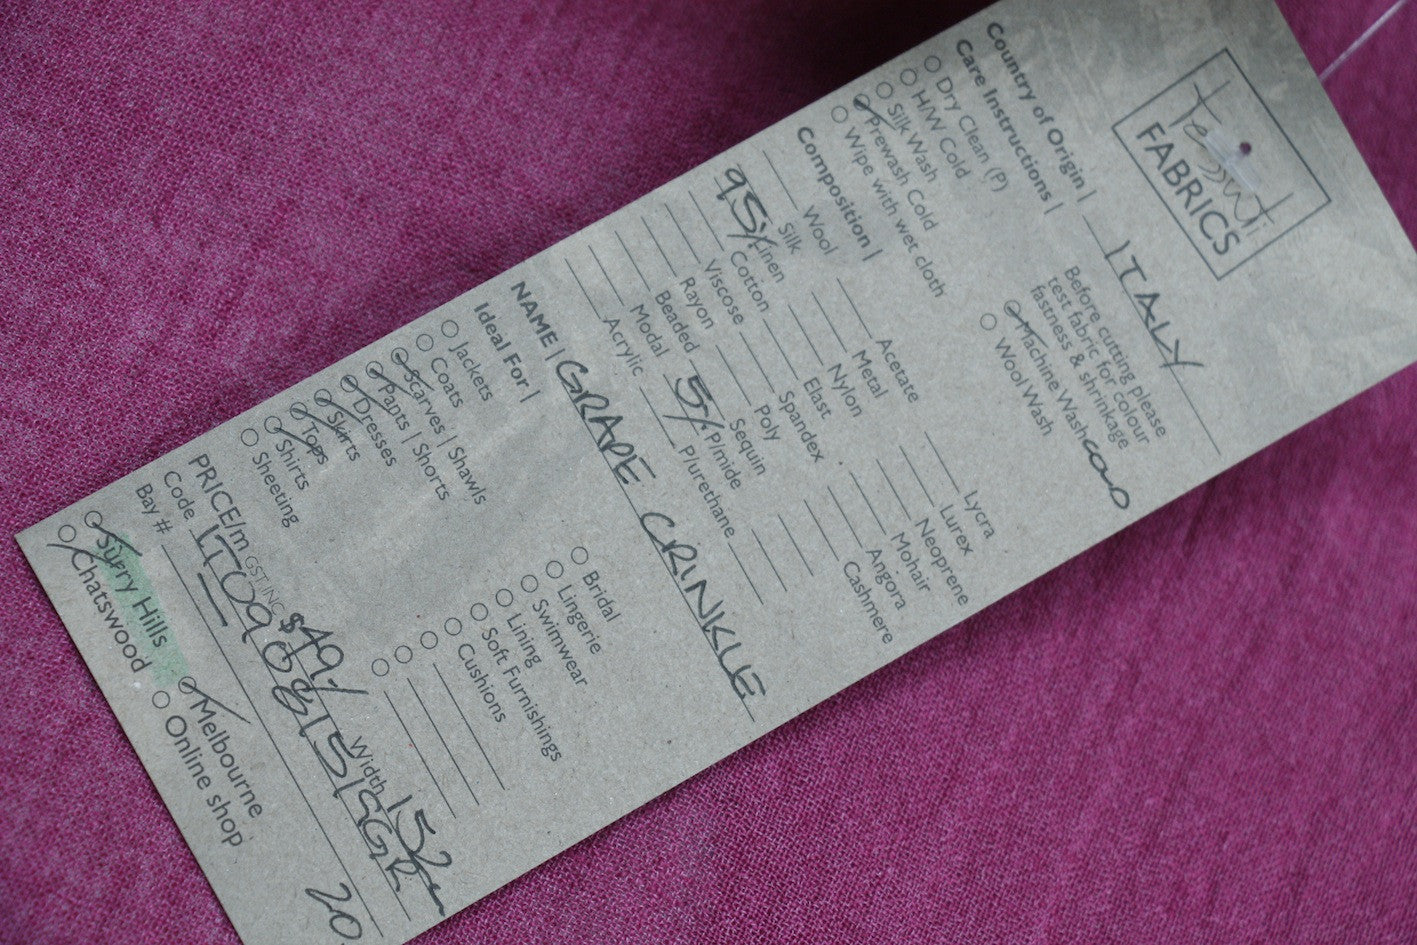 tessuti
FABRICS
Country of Origin | ITALY
Care Instructions |
Dry Clean (P)
H/W Cold
Silk Wash
Prewash Cold
Wipe with wet cloth
Before cutting please
test fabric for colour
fastness & shrinkage
Machine Wash COLD
Wool Wash
Composition |
Wool
Silk
95% Linen
Cotton
Viscose
Rayon
Beaded
Modal
Acrylic
Acetate
Metal
Nylon
Elast
Spandex
Poly
Sequin
5% P/mide
P/urethane
Lycra
Lurex
Neoprene
Mohair
Angora
Cashmere
NAME | GRAPE CRINKLE
Ideal For |
Jackets
Coats
Scarves | Shawls
Pants | Shorts
Dresses
Skirts
Tops
Shirts
Sheeting
Bridal
Lingerie
Swimwear
Lining
Soft Furnishings
Cushions
PRICE/m GST INC $49/- Width 152cm
Code
Bay #
20
Surry Hills
Chatswood
Melbourne
Online shop